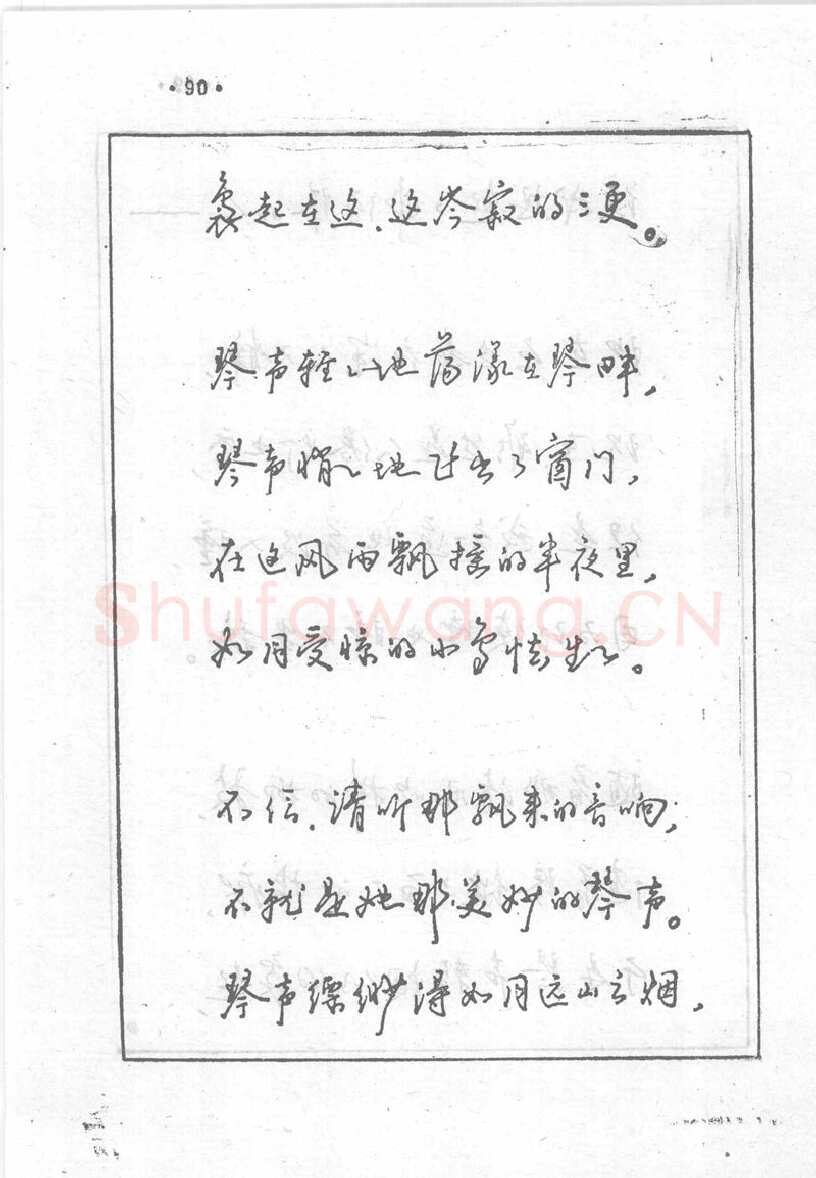 ·90·
袅起在这、这岑寂的三更。
琴声轻轻地荡漾在琴畔,
琴声悄悄地飞出了窗门,
在这风雨飘摇的半夜里,
如同受惊的小鸟怯生生。
不信,请听那飘来的音响,
不就是她那美妙的琴声。
琴声缥缈得如同远山云烟,
Shufawang.CN